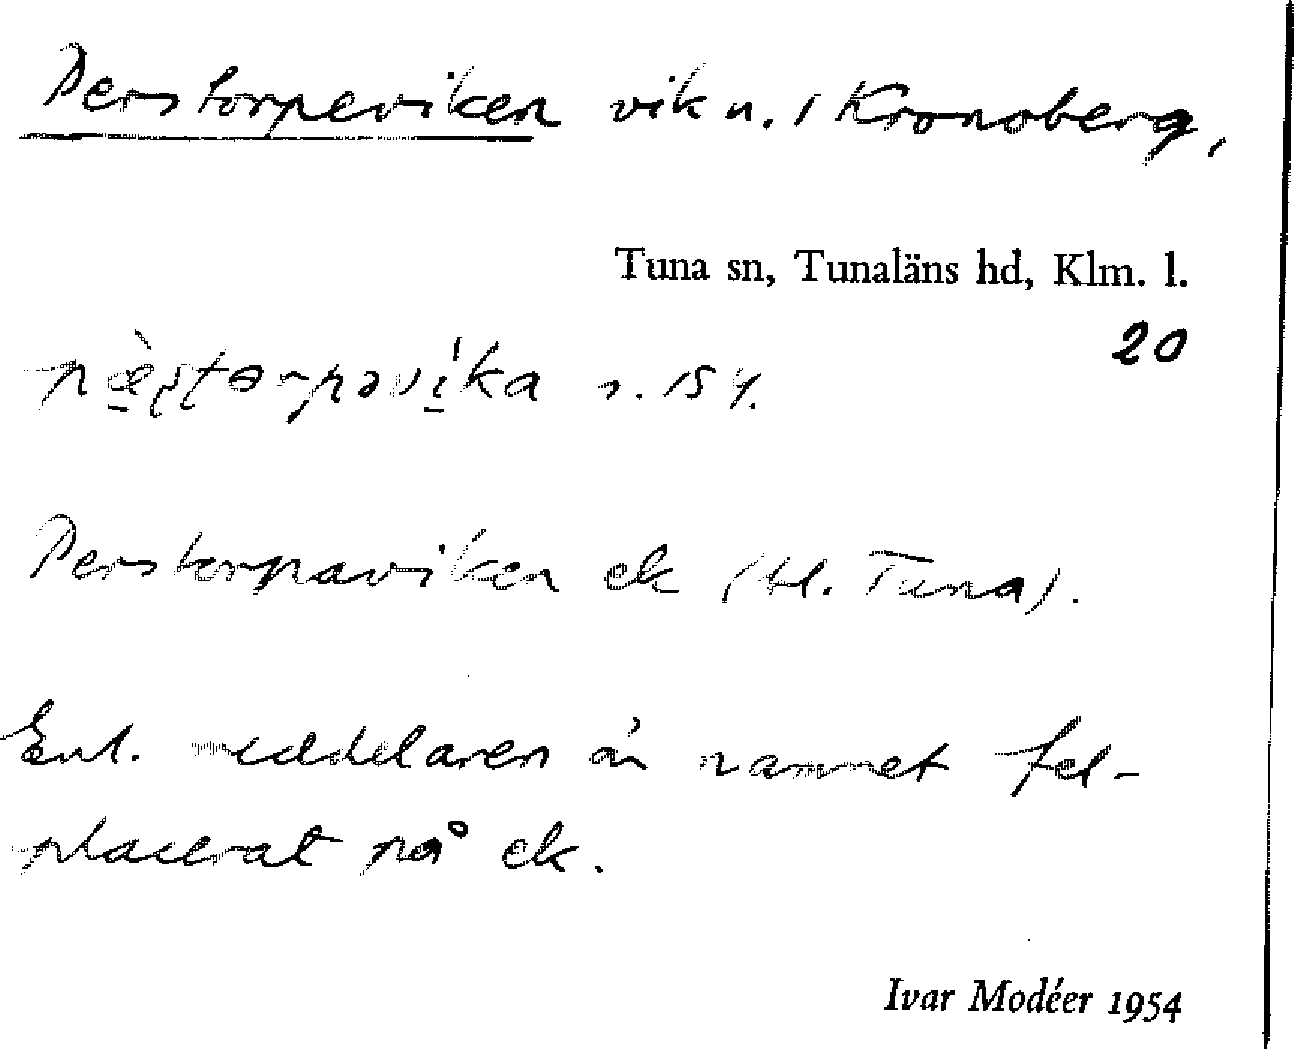 Perstorpeviken vik n. i Kronoberg,
Tuna sn, Tunaläns hd, Klm. l.
20
s. 154.
Perstorpaviken ek (bl. Tuna).
Enl. meddelaren är namnet fel-
placerat på ek.
Ivar Modéer 1954